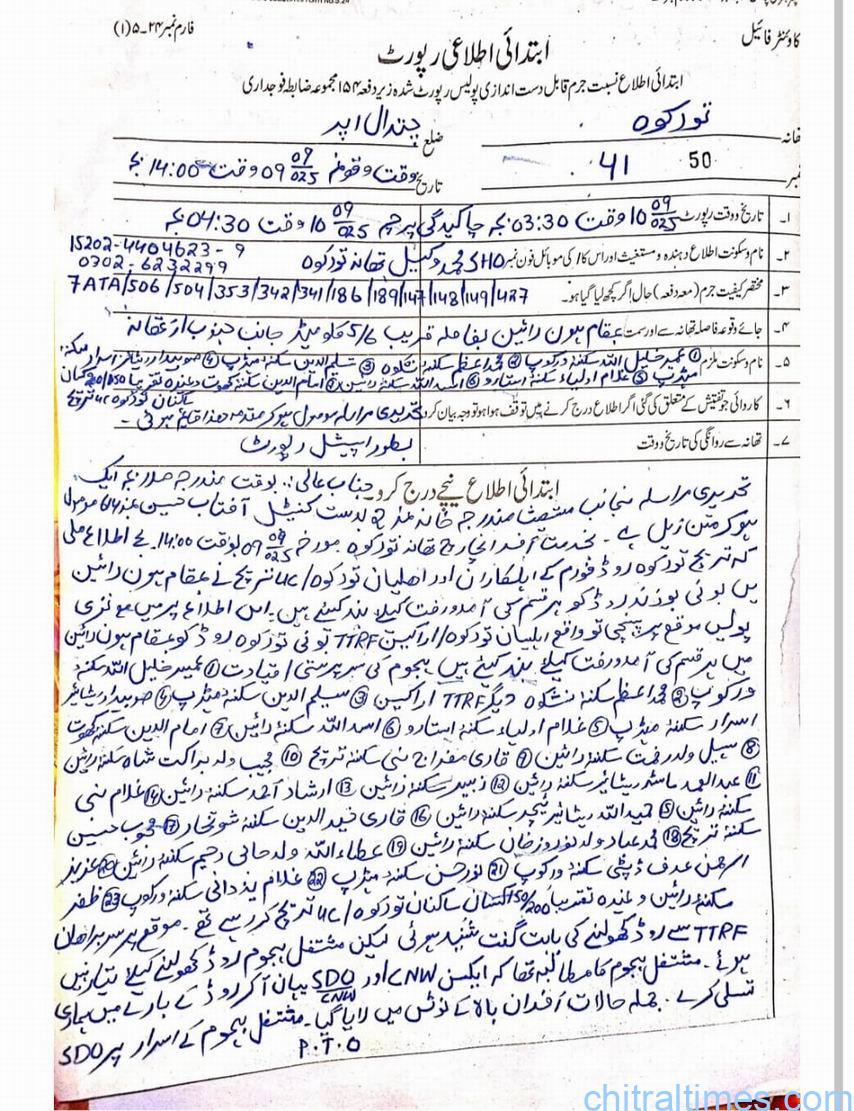 فارم نمبر ۲۴۔۵(۱)
کاؤنٹر فائیل
ابتدائی اطلاعی رپورٹ
ابتدائی اطلاع نسبت جرم قابل دست اندازی پولیس رپورٹ شدہ زیر دفعہ ۱۵۴ مجموعہ ضابطہ فوجداری
تھانہ تورکوہ ضلع چترال اپر
نمبر 41 50 تاریخ وقت وقوعہ 09 09/025 وقت 14:00 بجے
۱۔ تاریخ و وقت رپورٹ 10 09/025 وقت 03:30 بجے چاکیدگی پرچہ 10 09/025 وقت 04:30 بجے
۲۔ نام و سکونت اطلاع دہندہ و مستغیث اور اس کا / کی موبائل فون نمبر SHO محمد وکیل تھانہ تورکوہ 15202-4404623-9
0302-6232299
۳۔ مختصر کیفیت جرم (معہ دفعہ) حال اگر کچھ لیا گیا ہو۔ 427/149/148/147/189/186/341/342/353/504/506/7ATA
۴۔ جائے وقوعہ فاصلہ تھانہ سے اور سمت بمقام ہون رائین بفاصلہ قریب 5/6 کلومیٹر جانب جنوب از تھانہ
۵۔ نام و سکونت ملزم ① عمیر خلیل اللہ سکنہ ورکوپ ② محمد اعظم سکنہ نشکوہ ③ سلیم الدین سکنہ میڑپ ④ صوبیدار ریٹائر اسرار سکنہ
میڑپ ⑤ غلام اولیاء سکنہ استارو ⑥ اسد اللہ سکنہ رائین ⑦ امام الدین سکنہ کھوت وغیرہ تقریبا 150/200 کسان
ساکنان تورکوہ / تریچ
۶۔ کاروائی جو تفتیش کے متعلق کی گئی اگر اطلاع درج کرنے میں توقف ہوا ہو تو وجہ بیان کرو تحریری مراسلہ موصول ہوکر مقدمہ ھذا قائم ہوئی۔
۷۔ تھانہ سے روانگی کی تاریخ و وقت بطور اسپیشل رپورٹ
ابتدائی اطلاع نیچے درج کرو۔ جناب عالی: بوقت مندرجہ صدر بجے ایک
تحریری مراسلہ منجانب مستغیث مندرجہ خانہ نمبر 2 بدست کنسٹیبل آفتاب حسین نمبر 614 موصول
ہوکر متن زیل ہے۔ بخدمت آفسر انچارج تھانہ تورکوہ مورخہ 09 09/025 بوقت 14:00 بجے اطلاع ملی
کہ تریچ تورکوہ روڈ فورم کے اہلکاران اور اھلیان تورکوہ / تریچ نے بمقام ہون رائین
میں بونی بوزند روڈ کو ہر قسم کی آمدورفت کیلئے بند کیئے ہیں۔ اس اطلاع پر میں معہ نفری
پولیس موقع پر پہنچی تو واقعی اہلیان تورکوہ / اراکین TTRF بونی تورکوہ روڈ کو بمقام ہون رائین
میں ہر قسم کی آمدورفت کیلئے بند کیئے ہیں ہجوم کی سرپرستی / قیادت ① عمیر خلیل اللہ سکنہ
ورکوپ ② محمد اعظم سکنہ نشکوہ دیگر TTRF اراکین ③ سلیم الدین سکنہ میڑپ ④ صوبیدار ریٹائر
اسرار سکنہ میڑپ ⑤ غلام اولیاء سکنہ استارو ⑥ اسد اللہ سکنہ رائین ⑦ امام الدین سکنہ کھوت
⑧ سہیل ولد رحمت سکنہ رائین ⑨ قاری معراج نبی سکنہ تریچ ⑩ مجیب ولد براکت شاہ سکنہ رائین
⑪ عبدالصمد ماسٹر ریٹائر سکنہ رائین ⑫ زبیر سکنہ رائین ⑬ ارشاد احمد سکنہ رائین ⑭ غلام نبی
سکنہ رائین ⑮ حمید اللہ ریٹائر ٹیچر سکنہ رائین ⑯ قاری فرید الدین سکنہ شوتخار ⑰ محبوب حسین
سکنہ تریچ ⑱ محمد عباد ولد نوروز خان سکنہ رائین ⑲ عطاء اللہ ولد حاجی رحیم سکنہ رائین ⑳ عزیز
الرحمن عرف ڈپٹی سکنہ ورکوپ ㉑ نور حسن سکنہ میڑپ ㉒ غلام یزدانی سکنہ ورکوپ ㉓ ظفر
سکنہ رائین وغیرہ تقریبا 150/200 کسان ساکنان تورکوہ / تریچ کر رہے تھے۔ موقع پر سربراھان
TTRF سے روڈ کھولنے کی بابت گفت شنید ہوئی لیکن مشتعل ہجوم روڈ کھولنے کیلئے تیار نہیں
ہوئے۔ مشتعل ہجوم کا مطالبہ تھا کہ ایکسن CNW اور SDO CNW یہاں آکر روڈ کے بارے میں ہماری
تسلی کرے۔ جملہ حالات افسران بالا کے نوٹس میں لایا گیا۔ مشتعل ہجوم کے اسرار پر SDO
P.T.O
chitraltimes.com